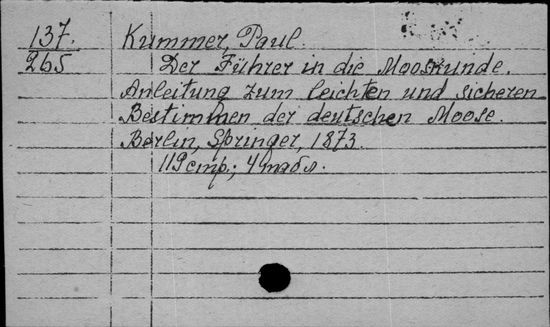 137.
265
Kummer, Paul.
Der Führer in die Mooskunde.
Anleitung zum leichten und sicheren
Bestimmen der deutschen Moose.
Berlin, Springer, 1873.
119 стр.; 4 табл.